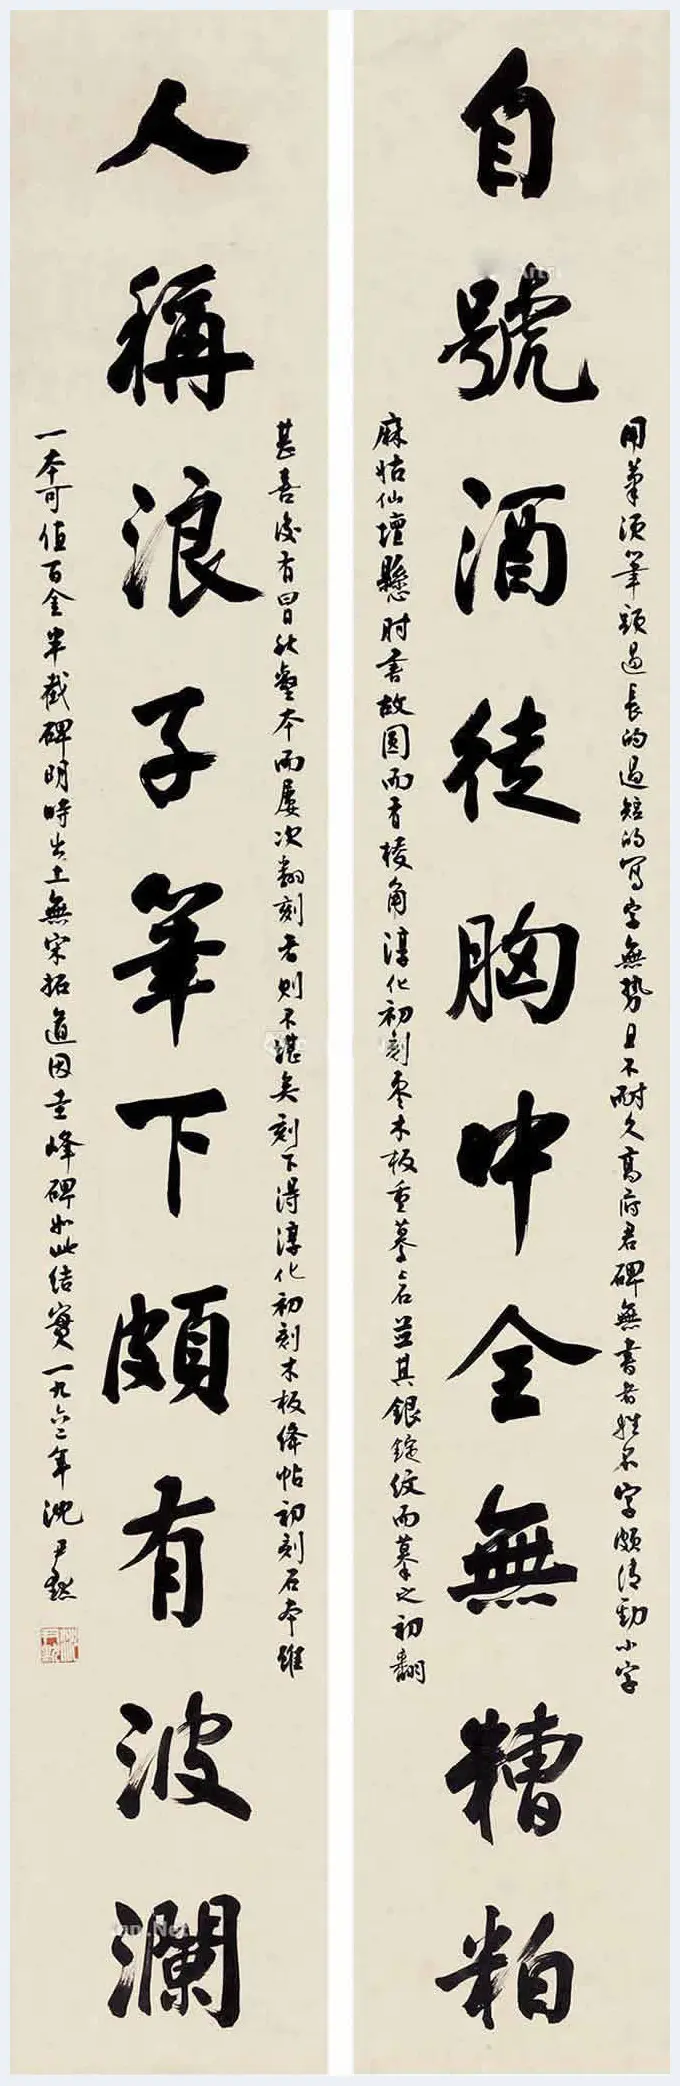 自號酒徒胸中全無糟粕
用筆須筆頭過長的過短的寫字無勢且不耐久高府君碑無書者姓名字頗清勁小字
麻姑仙壇懸肘書故圓而有棱角淳化初刻棗木板重摹上石并其銀錠紋而摹之初翻
人稱浪子筆下頗有波瀾
甚善後有曰肚壷本而屢次翻刻者則不堪矣刻下得淳化初刻木板絳帖初刻石本雖
一本可值百金半截碑明時出土無宋拓道因圭峰碑如此結實一九六二年沈尹默